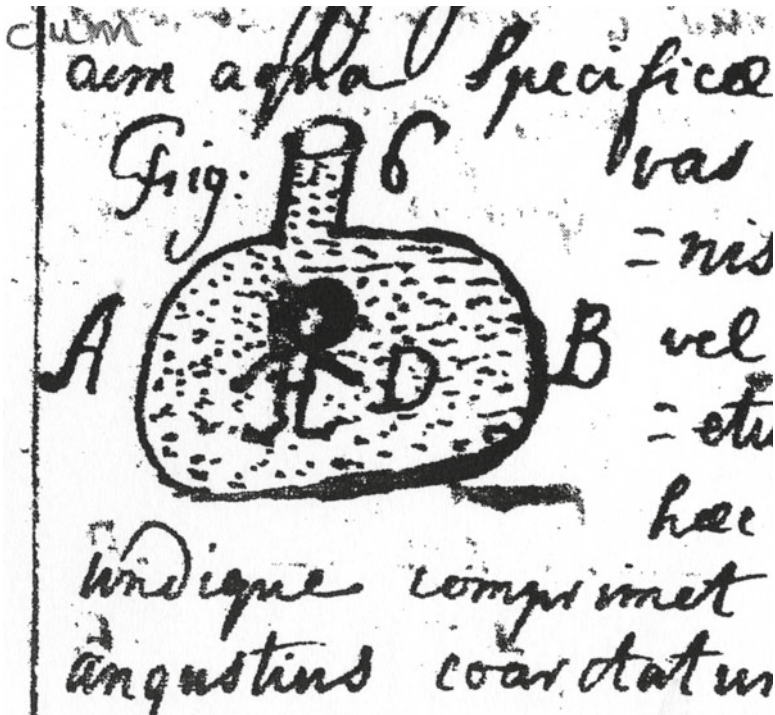 cum
aqua Specificæ
Frig: 6 vas
=nis
A B vel
D
=etu
hæc
undique comprimet
angustius coarctatur